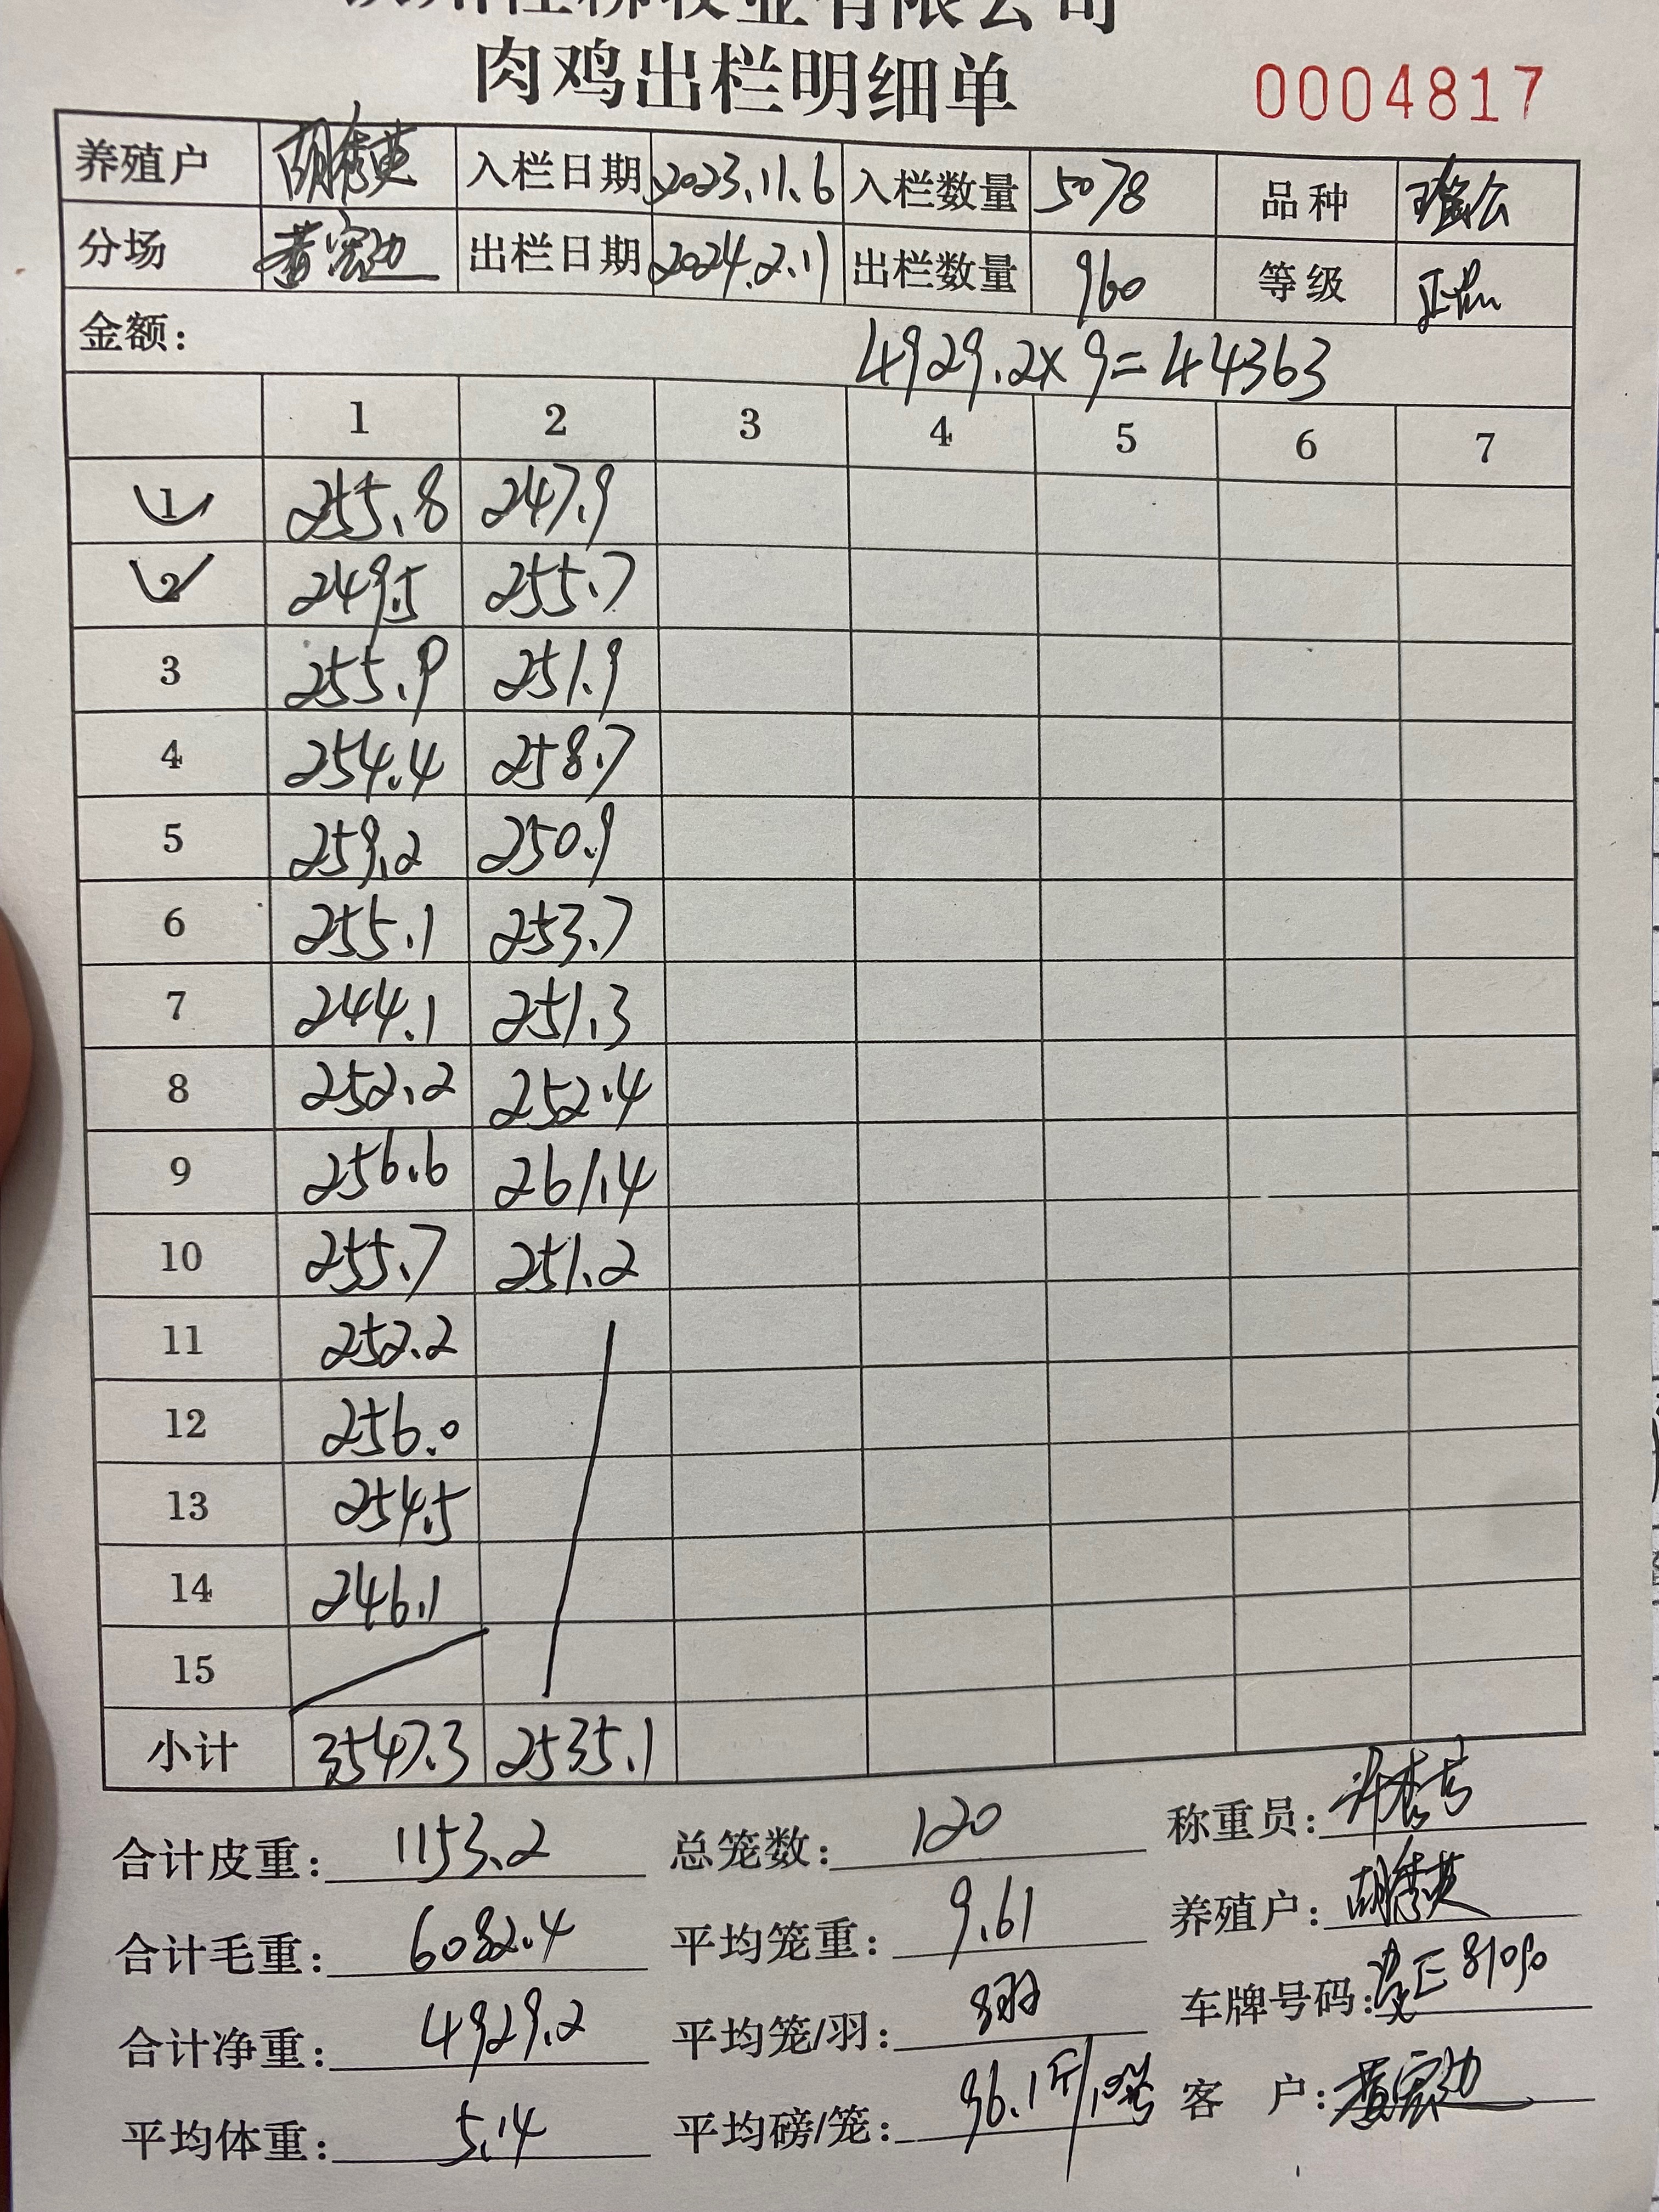 牧业有限公司
肉鸡出栏明细单 0004817
养殖户 胡秀英 入栏日期 2023.11.6 入栏数量 5078 品种
分场 出栏日期 2024.2.11 出栏数量 960 等级
金额: 4929.2×9=44363
1 2 3 4 5 6 7
1 255.8 247.9
2 249.5 255.7
3 255.9 251.9
4 254.4 258.7
5 259.2 250.9
6 255.1 253.7
7 244.1 251.3
8 252.2 252.4
9 256.6 261.4
10 255.7 251.2
11 252.2
12 256.0
13 254.5
14 246.1
15
小计 3547.3 2535.1
合计皮重: 1153.2 总笼数: 120 称重员:
合计毛重: 6082.4 平均笼重: 9.61 养殖户: 胡秀英
合计净重: 4929.2 平均笼/羽: 8羽 车牌号码:
平均体重: 5.14 平均磅/笼: 96.1斤/ 客 户: